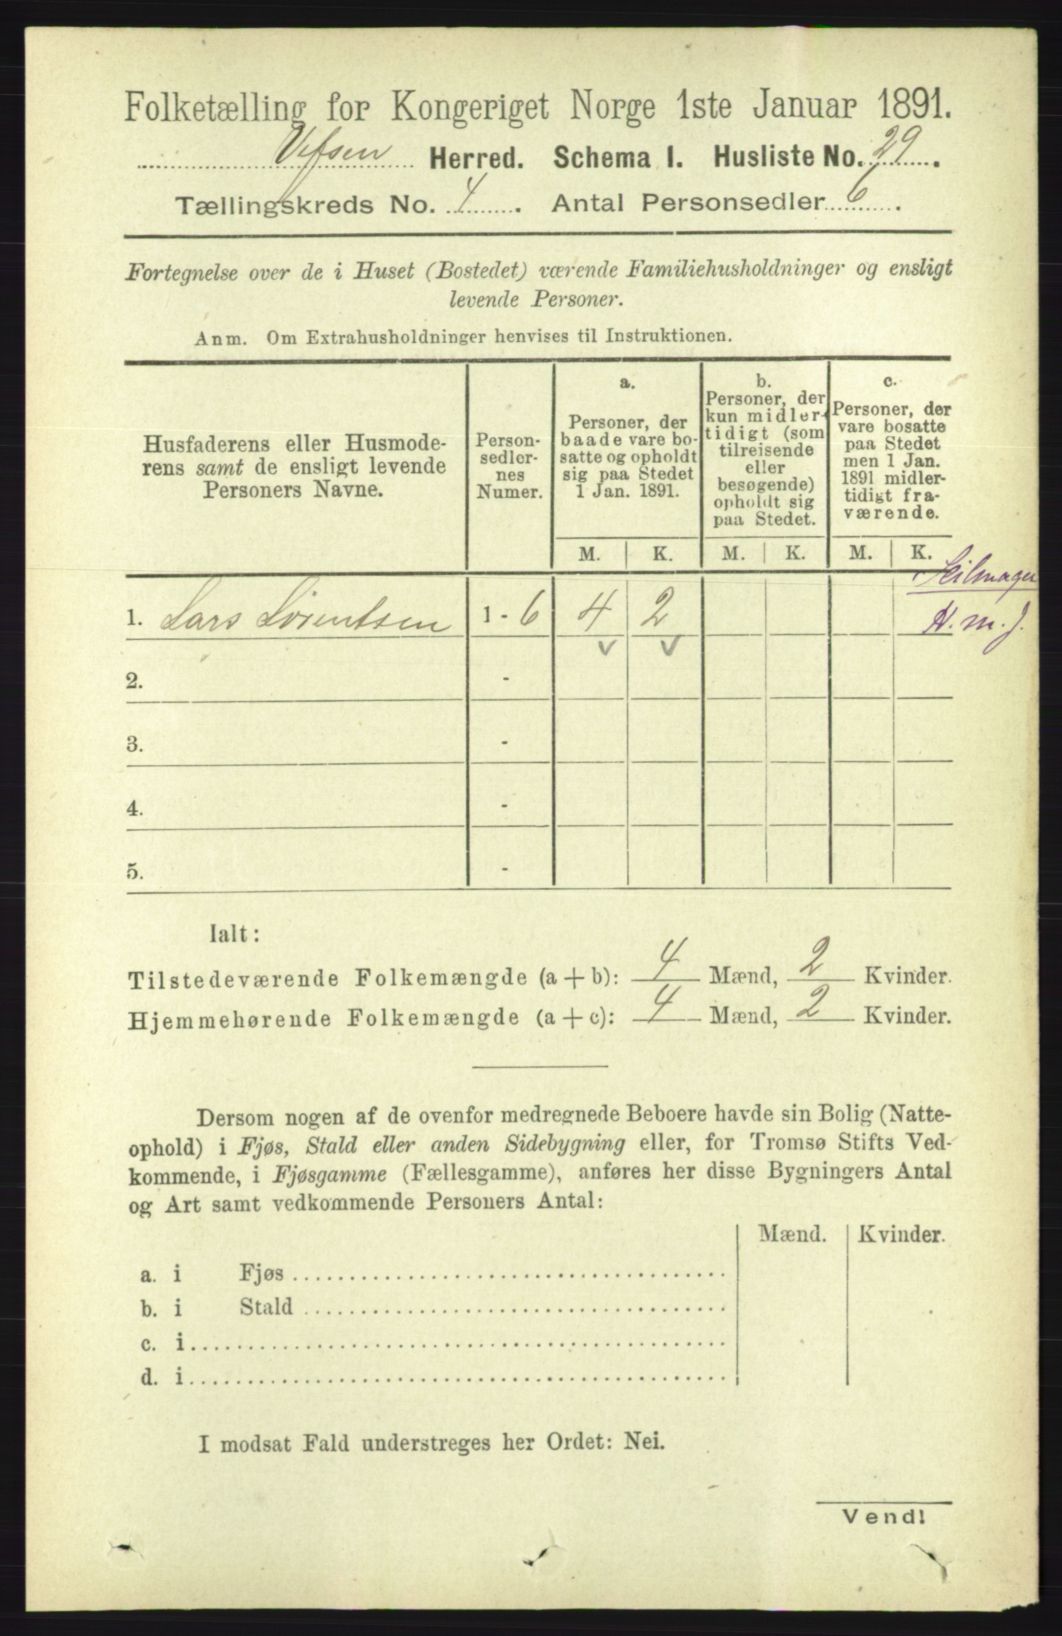 Folketælling for Kongeriget Norge 1ste Januar 1891.
Vefsen Herred. Schema I. Husliste No. 29.
Tællingskreds No. 4. Antal Personsedler 6.
Fortegnelse over de i Huset (Bostedet) værende Familiehusholdninger og ensligt
levende Personer.
Anm. Om Extrahusholdninger henvises til Instruktionen.
Husfaderens eller Husmode-
rens samt de ensligt levende
Personers Navne.
Person-
sedler-
nes
Numer.
a.
Personer, der
baade vare bo-
satte og opholdt
sig paa Stedet
1 Jan. 1891.
b.
Personer, der
kun midler-
tidigt (som
tilreisende
eller
besøgende)
opholdt sig
paa Stedet.
c.
Personer, der
vare bosatte
paa Stedet
men 1 Jan.
1891 midler-
tidigt fra-
værende.
M. K. M. K. M. K.
Seilmager
1. Lars Sørentsen 1 - 6 4 2 H. m. J.
2. -
3. -
4. -
5. -
Ialt:
Tilstedeværende Folkemængde (a + b): 4 Mænd, 2 Kvinder.
Hjemmehørende Folkemængde (a + c): 4 Mænd, 2 Kvinder.
Dersom nogen af de ovenfor medregnede Beboere havde sin Bolig (Natte-
ophold) i Fjøs, Stald eller anden Sidebygning eller, for Tromsø Stifts Ved-
kommende, i Fjøsgamme (Fællesgamme), anføres her disse Bygningers Antal
og Art samt vedkommende Personers Antal:
Mænd. Kvinder.
a. i Fjøs
b. i Stald
c. i
d. i
I modsat Fald understreges her Ordet: Nei.
Vend!